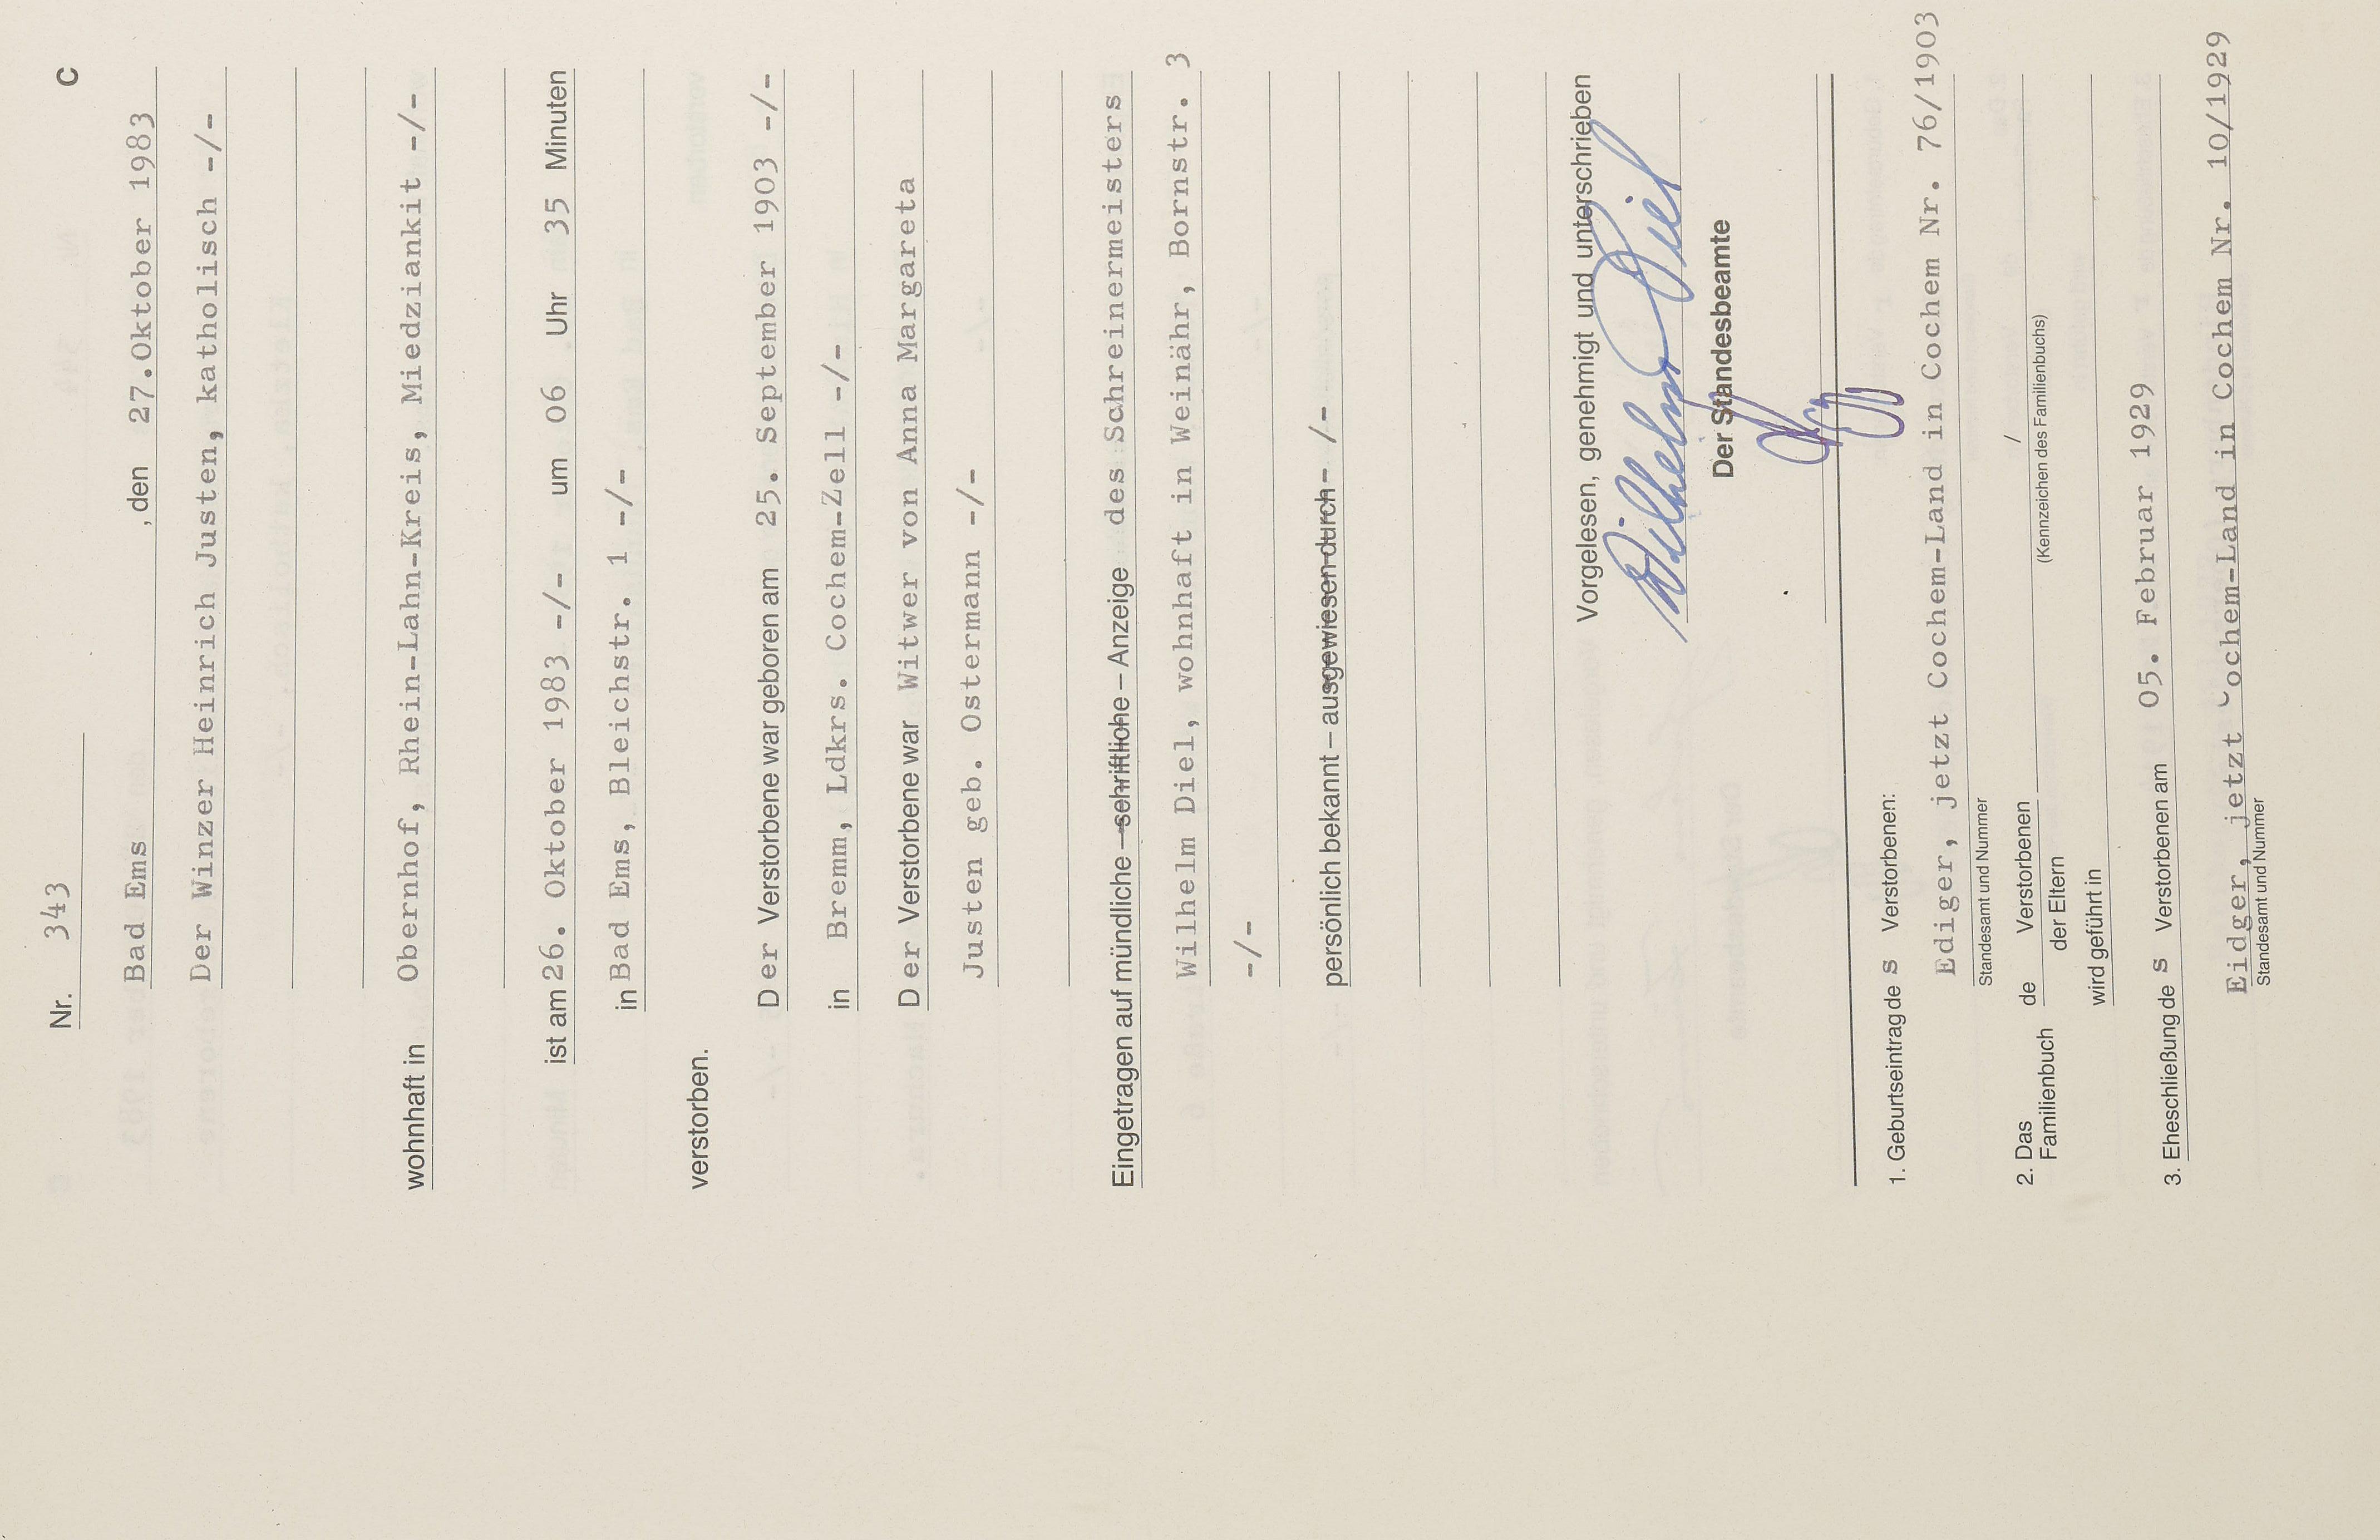 Nr. 343 C
Bad Ems , den 27.Oktober 1983
Der Winzer Heinrich Justen, katholisch -/-
wohnhaft in Obernhof, Rhein-Lahn-Kreis, Miedziankit -/-
ist am 26. Oktober 1983 -/- um 06 Uhr 35 Minuten
in Bad Ems, Bleichstr. 1 -/-
verstorben.
D er Verstorbene war geboren am 25. September 1903 -/-
in Bremm, Ldkrs. Cochem-Zell -/-
D er Verstorbene war Witwer von Anna Margareta
Justen geb. Ostermann -/-
Eingetragen auf mündliche – schriftliche – Anzeige des Schreinermeisters
Wilhelm Diel, wohnhaft in Weinähr, Bornstr. 3
-/-
persönlich bekannt – ausgewiesen durch - /-
Vorgelesen, genehmigt und unterschrieben
Wilhelm Diel
Der Standesbeamte
1. Geburtseintrag de s Verstorbenen:
Ediger, jetzt Cochem-Land in Cochem Nr. 76/1903
Standesamt und Nummer
2. Das Familienbuch de Verstorbenen /
der Eltern (Kennzeichen des Familienbuchs)
wird geführt in
3. Eheschließung de s Verstorbenen am 05. Februar 1929
Eidger, jetzt Cochem-Land in Cochem Nr. 10/1929
Standesamt und Nummer